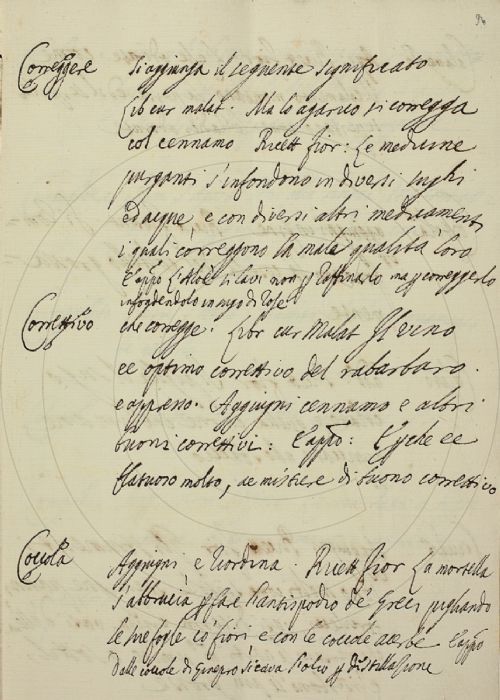 96
Correggere si aggiunga il seguente significato
Lib cur malat. Ma lo agarico si corregga
col cennamo Ricett Fior: Le medicine
purganti s'infondono in diversi sughi
ed acque e con diversi altri medicamenti
i quali correggono la mala qualità loro
L'Aloè si lavi non p ma p correggerlo
infondendolo in sugo di rose
Correttivo che corregge. Libr cur Malat Il vino
ee optimo correttivo del rabarbaro.
e appreso. Aggiugni cennamo e altri
buoni correttivi: E appo: ee
flatuoso molto, ae mistiere di buono correttivo
Coccola Aggiugni e riordina. Ricett Fior La mortella
s'abbrucia p fare l'antispodio de Greci pigliando
le sue foglie co' fiori e con le coccole acerbe E appo
Dalle coccole di Ginepro si cava l'olio p distillazione